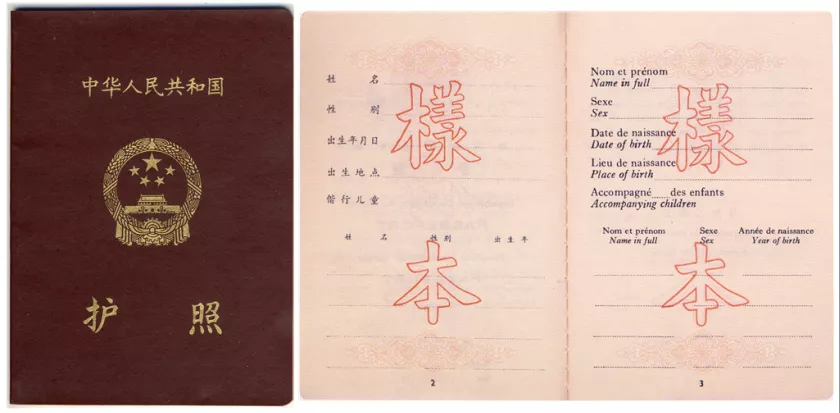 中华人民共和国
护 照
姓 名
性 别
出生年月日
出生地点
偕行儿童
姓 名 性别 出生年
樣
本
2
Nom et prénom
Name in full
Sexe
Sex
Date de naissance
Date of birth
Lieu de naissance
Place of birth
Accompagné......des enfants
Accompanying children
Nom et prénom Sexe Année de naissance
Name in full Sex Year of birth
樣
本
3